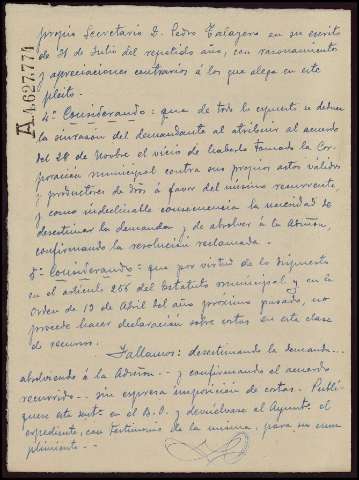 A.4.627.774
propio Secretario D. Pedro Talagero en su escrito
de 31 de Julio del repetido año, con razonamientos
y apreciaciones contrarios á los que alega en este
pleito.
4º Considerando: que de todo lo expuesto se deduce
la sinrazón del demandante al atribuir al acuerdo
del 28 de Novbre el vicio de haberlo tomado la Cor-
poración municipal contra sus propios actos válidos
y productores de dros á favor del mismo recurrente,
y como indeclinable consecuencia la necesidad de
desestimar la demanda y de absolver á la Admon,
confirmando la resolución reclamada.
5º Considerando: que por virtud de lo dispuesto
en el artículo 256 del Estatuto municipal y en la
Orden de 19 de Abril del año próximo pasado, no
procede hacer declaración sobre costas en esta clase
de recursos.
Fallamos: desestimando la demanda...
absolviendo á la Admon -- y confirmando el acuerdo
recurrido -- sin expresa imposición de costas. Publí-
quese esta sent. en el B.O. y devuélvase al Ayunt. el
expediente, con testimonio de la misma, para su cum
plimiento --